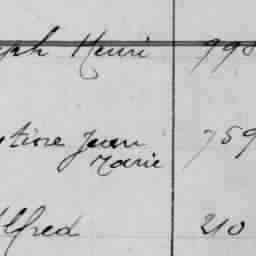 ph Henri 990
tine Jean 759
Marie
lfred 210